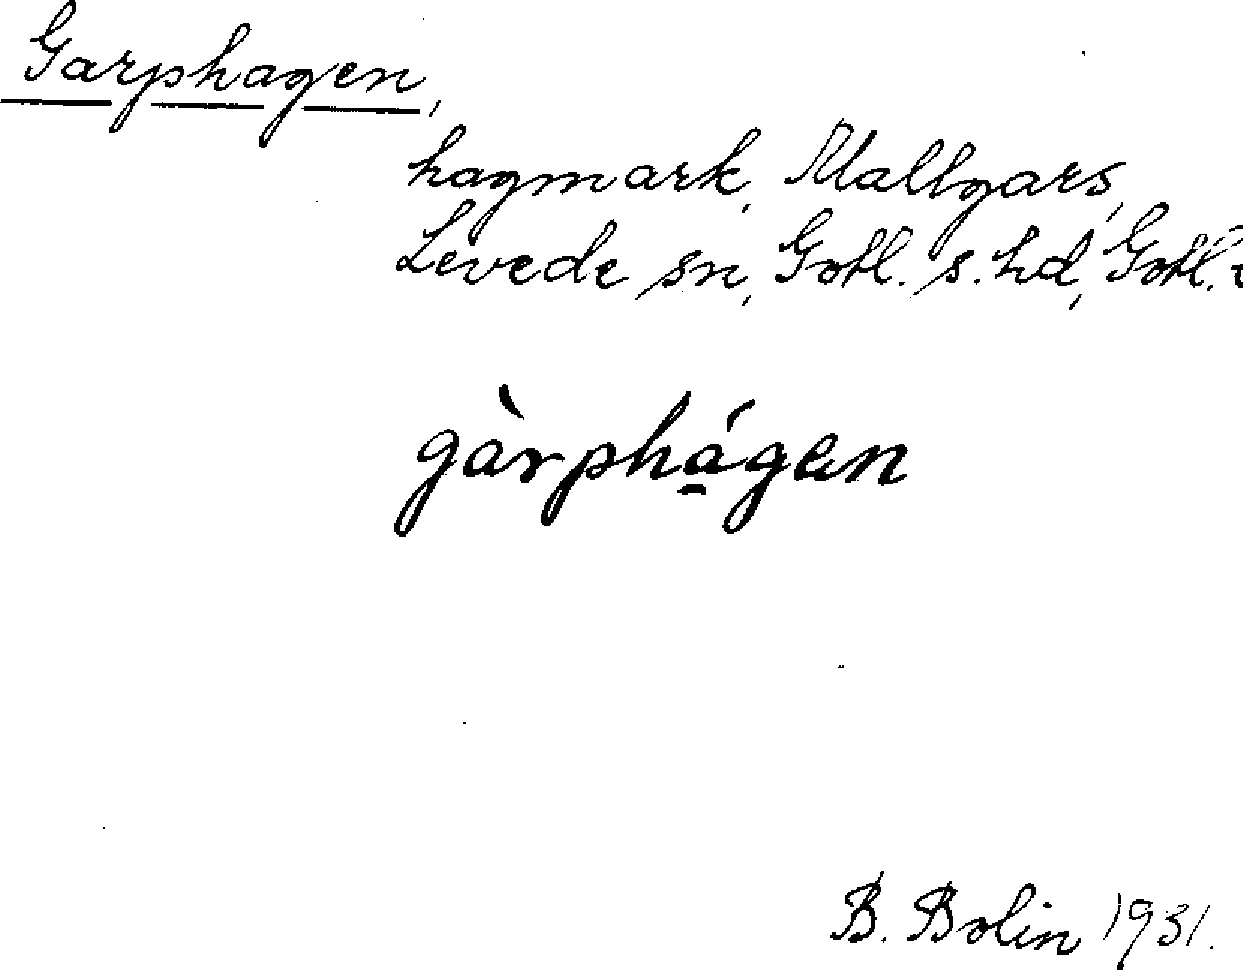 Garphagen,
hagmark, Mallgars,
Levede sn, Gotl. s. hd, Gotl.
gàrphágen
B. Bolin 1931.